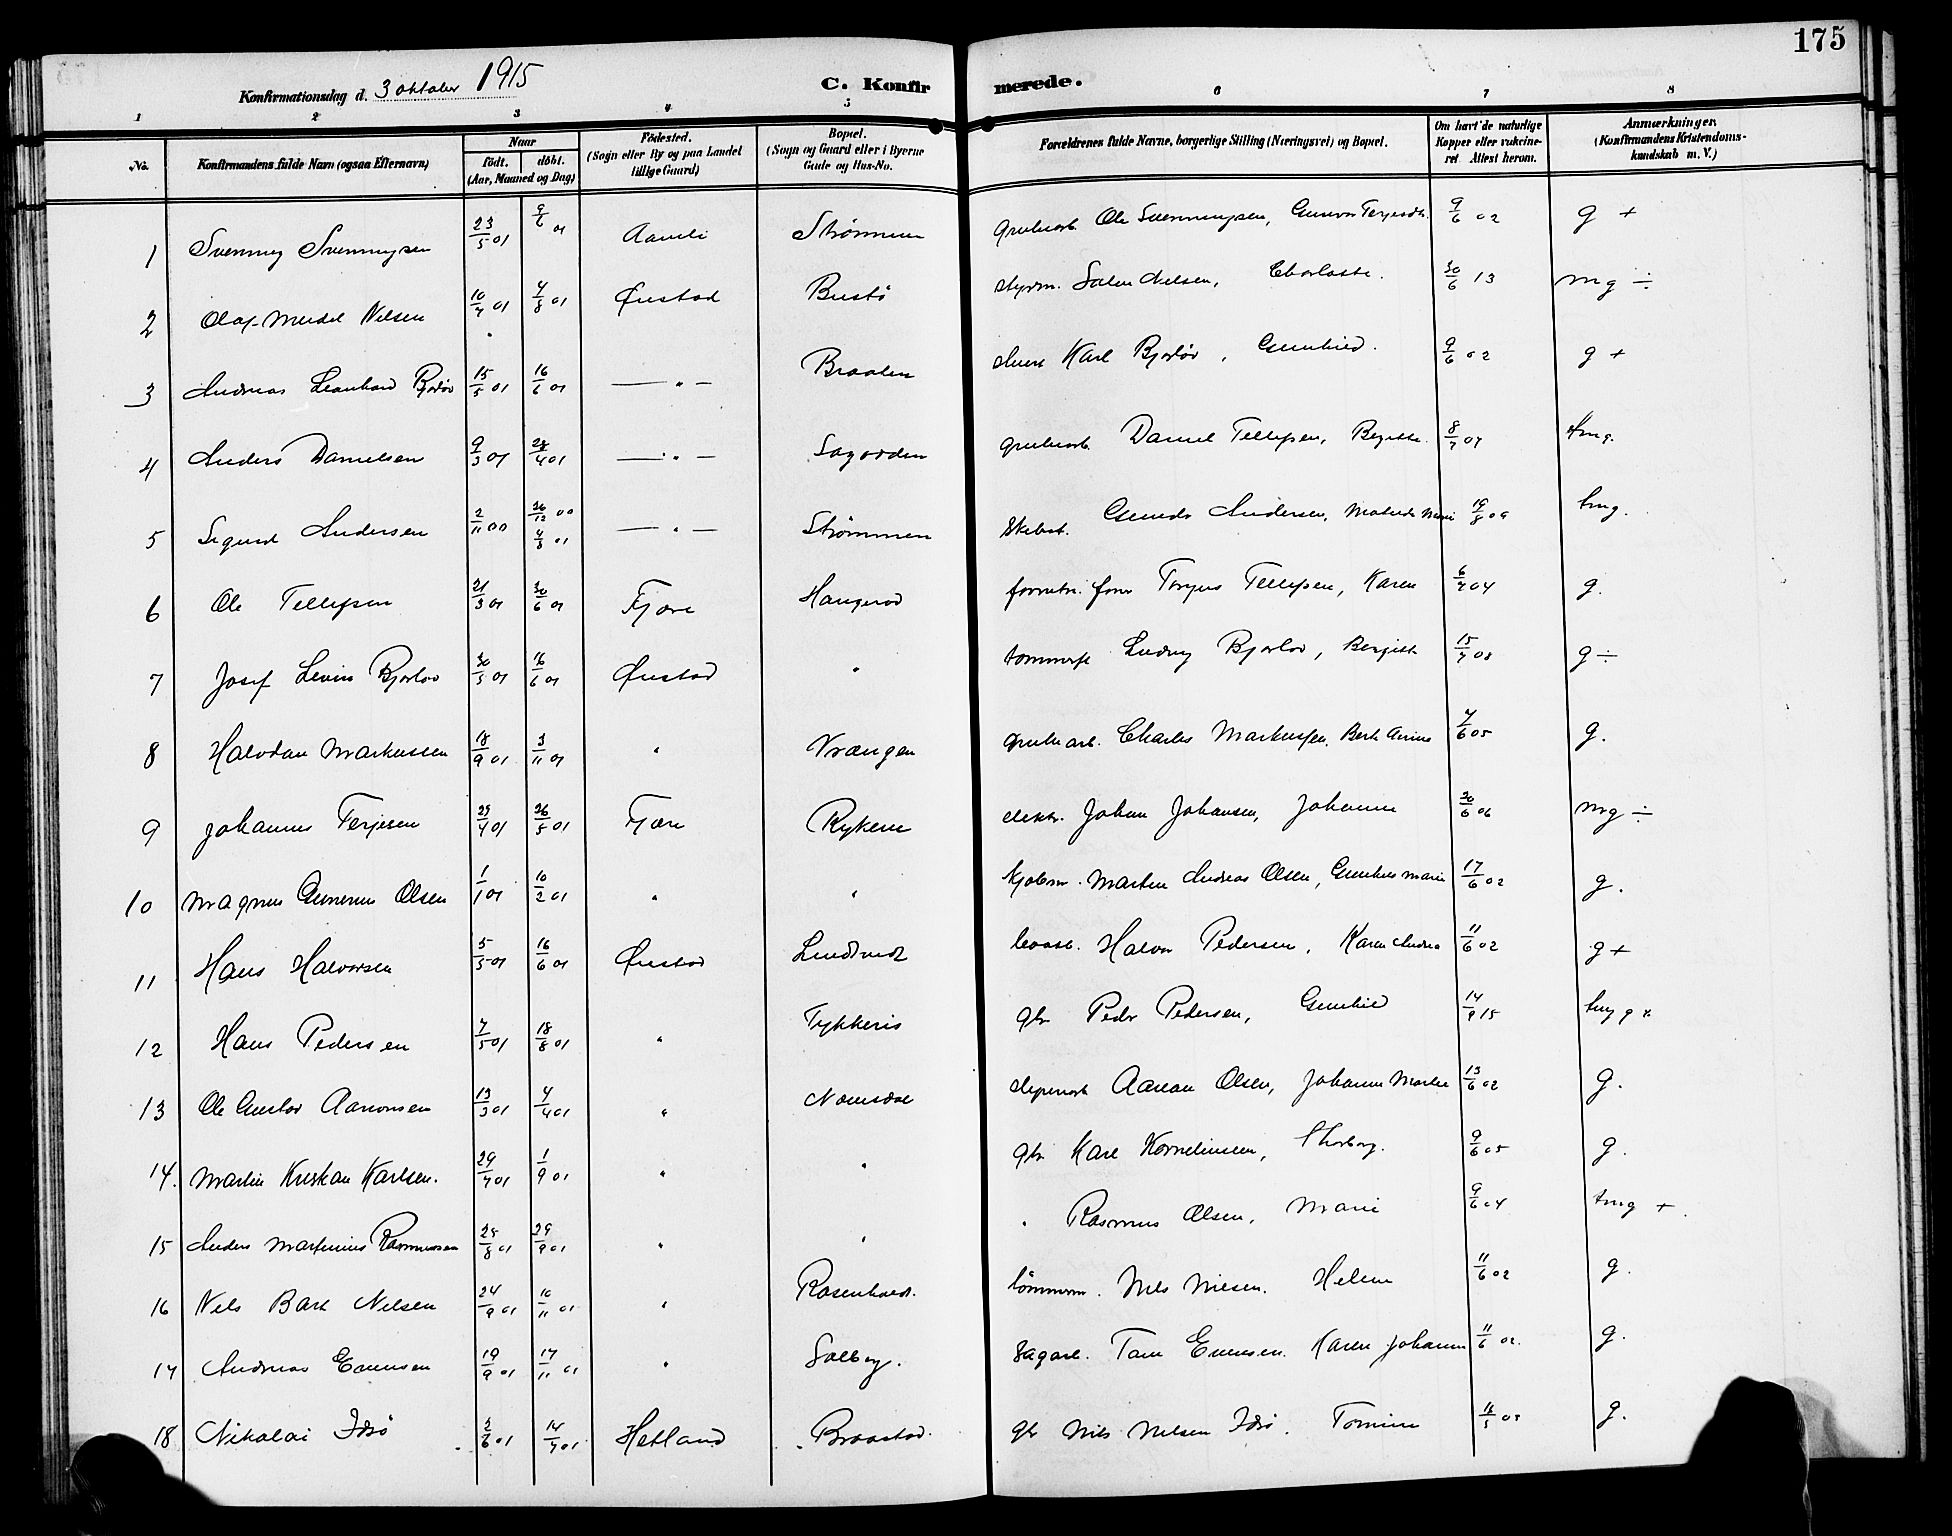 175
Konfirmationsdag d. 3 oktober 1915
C. Konfirmerede.
1 2 3 4 5 6 7 8
No. Konfirmandens fulde Navn (ogsaa Efternavn) Naar født. døbt. (Aar, Maaned og Dag) Fødested. (Sogn eller By og paa Landet tillige Gaard) Bopæl. (Sogn og Gaard eller i Byerne Gade og Hus-No. Forældrenes fulde Navne, borgerlige Stilling (Næringsvei) og Bopæl. Om havt de naturlige Kopper eller vaksineret Attest herom. Anmærkninger. (Konfirmandens Kristendomskundskab m. V.)
1 Svenning Svenningsen 23/5 01 9/6 01 Aamli Strømmen Grubearb. Ole Svenningsen, Gunvor Terjesdt. 9/6 02 g +
2 Olaf Nilsen 10/7 01 4/8 01 Øiestad Bustø styrm. Nielsen, Charlotte. 30/6 13 mg ÷
3 Andreas Leonhard Bjorløv 15/5 01 16/6 01 — " — Braaten Karl Bjorløv, Gunhild. 9/6 02 g +
4 Anders Danielsen 9/3 01 28/4 01 — " — Sagodden grubearb. Daniel Tellefsen, Bergitte. 8/7 07 tmg.
5 Sigurd Andersen 2/11 00 26/12 00 4/8 01 — " — Strømmen Skibst. Andersen, Marie 19/8 09 tmg.
6 Ole Tellefsen 21/3 01 30/6 01 Fjære Haugerød Torjus Tellefsen, Karen 6/7 04 g.
7 Josef Levin Bjorlov 30/5 01 16/6 01 Øiestad " tømmerm. Ludvig Bjorlov, Bergitte 15/7 08 g ÷
8 Halvdan Markussen 18/9 01 3/11 01 " Vrængen grubearb. Charles Markussen, 4/6 05 g.
9 Johannes Terjesen 29/4 01 26/5 01 Fjære Rykene elektr. Johan Johansen, Johanne 30/6 06 mg ÷
10 Magnus Olsen 1/1 01 10/2 01 " " Martin Andreas Olsen, Marie 17/6 02 g.
11 Hans Halvorsen 5/5 01 16/6 01 Øiestad Lindtveit Halvor Pedersen, Karen Andrea 11/6 02 g +
12 Hans Pedersen 7/5 01 18/8 01 " Tykkeris Gbr Peder Pedersen, Gunhild 14/9 15
13 Ole Gustav Aanonsen 13/3 01 4/4 01 " Næmsdal Aanon Olsen, Johanne Marthe 13/6 02 g.
14. Martin Kristian Karlsen. 29/7 01 1/9 01 " " Gbr Karl Korneliussen, Thorborg. 9/6 05 g.
15 Anders Martinius Rasmussen 25/8 01 29/9 01 " " " Rasmus Olsen, Marie 9/6 04 tmg +.
16 Nils Nilsen 24/9 01 10/11 01 " Rosenholt. tømmerm. Nils Nilsen. Helene 11/6 02 g.
17 Andreas Evensen 19/9 01 17/11 01 " Solberg. Sagarb. Evensen. Karen Johanne 11/6 02. g.
18 Nikolai Idsø 2/6 01 14/7 01 Hetland Braastad. Gbr Nils Nilsen Idsø. Tomine g.